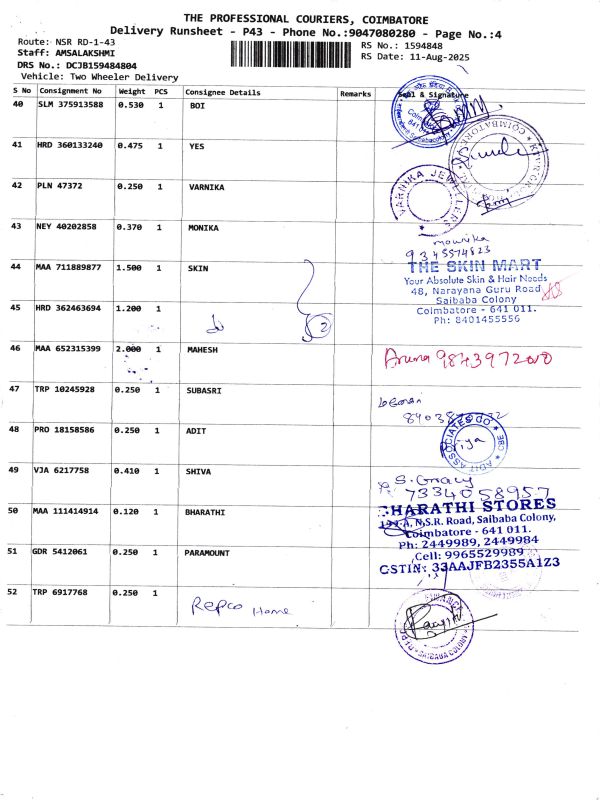 THE PROFESSIONAL COURIERS, COIMBATORE
Delivery Runsheet - P43 - Phone No.:9047080280 - Page No.:4
Route: NSR RD-1-43
RS No.: 1594848
Staff: AMSALAKSHMI
RS Date: 11-Aug-2025
DRS No.: DCJB159484804
Vehicle: Two Wheeler Delivery
S No Consignment No Weight PCS Consignee Details Remarks Seal & Signature
40 SLM 375913588 0.530 1 BOI
41 HRD 360133240 0.475 1 YES
42 PLN 47372 0.250 1 VARNIKA
VARNIKA JEWELLERS
43 NEY 40202858 0.370 1 MONIKA
mounika
9345574823
44 MAA 711889877 1.500 1 SKIN
THE SKIN MART
Your Absolute Skin & Hair Needs
48, Narayana Guru Road
Saibaba Colony
Coimbatore - 641 011.
Ph: 8401455556
45 HRD 362463694 1.200 1
2
46 MAA 652315399 2.000 1 MAHESH
Aruna
47 TRP 10245928 0.250 1 SUBASRI
48 PRO 18158586 0.250 1 ADIT
ADIT ASSOCIATES
Priya
49 VJA 6217758 0.410 1 SHIVA
7334058957
50 MAA 111414914 0.120 1 BHARATHI
BHARATHI STORES
N.S.R. Road, Saibaba Colony,
Coimbatore - 641 011.
Ph: 2449989, 2449984
Cell: 9965529989
GSTIN: 33AAJFB2355A1Z3
51 GDR 5412061 0.250 1 PARAMOUNT
52 TRP 6917768 0.250 1
Repco Home
SAIBABA COLONY